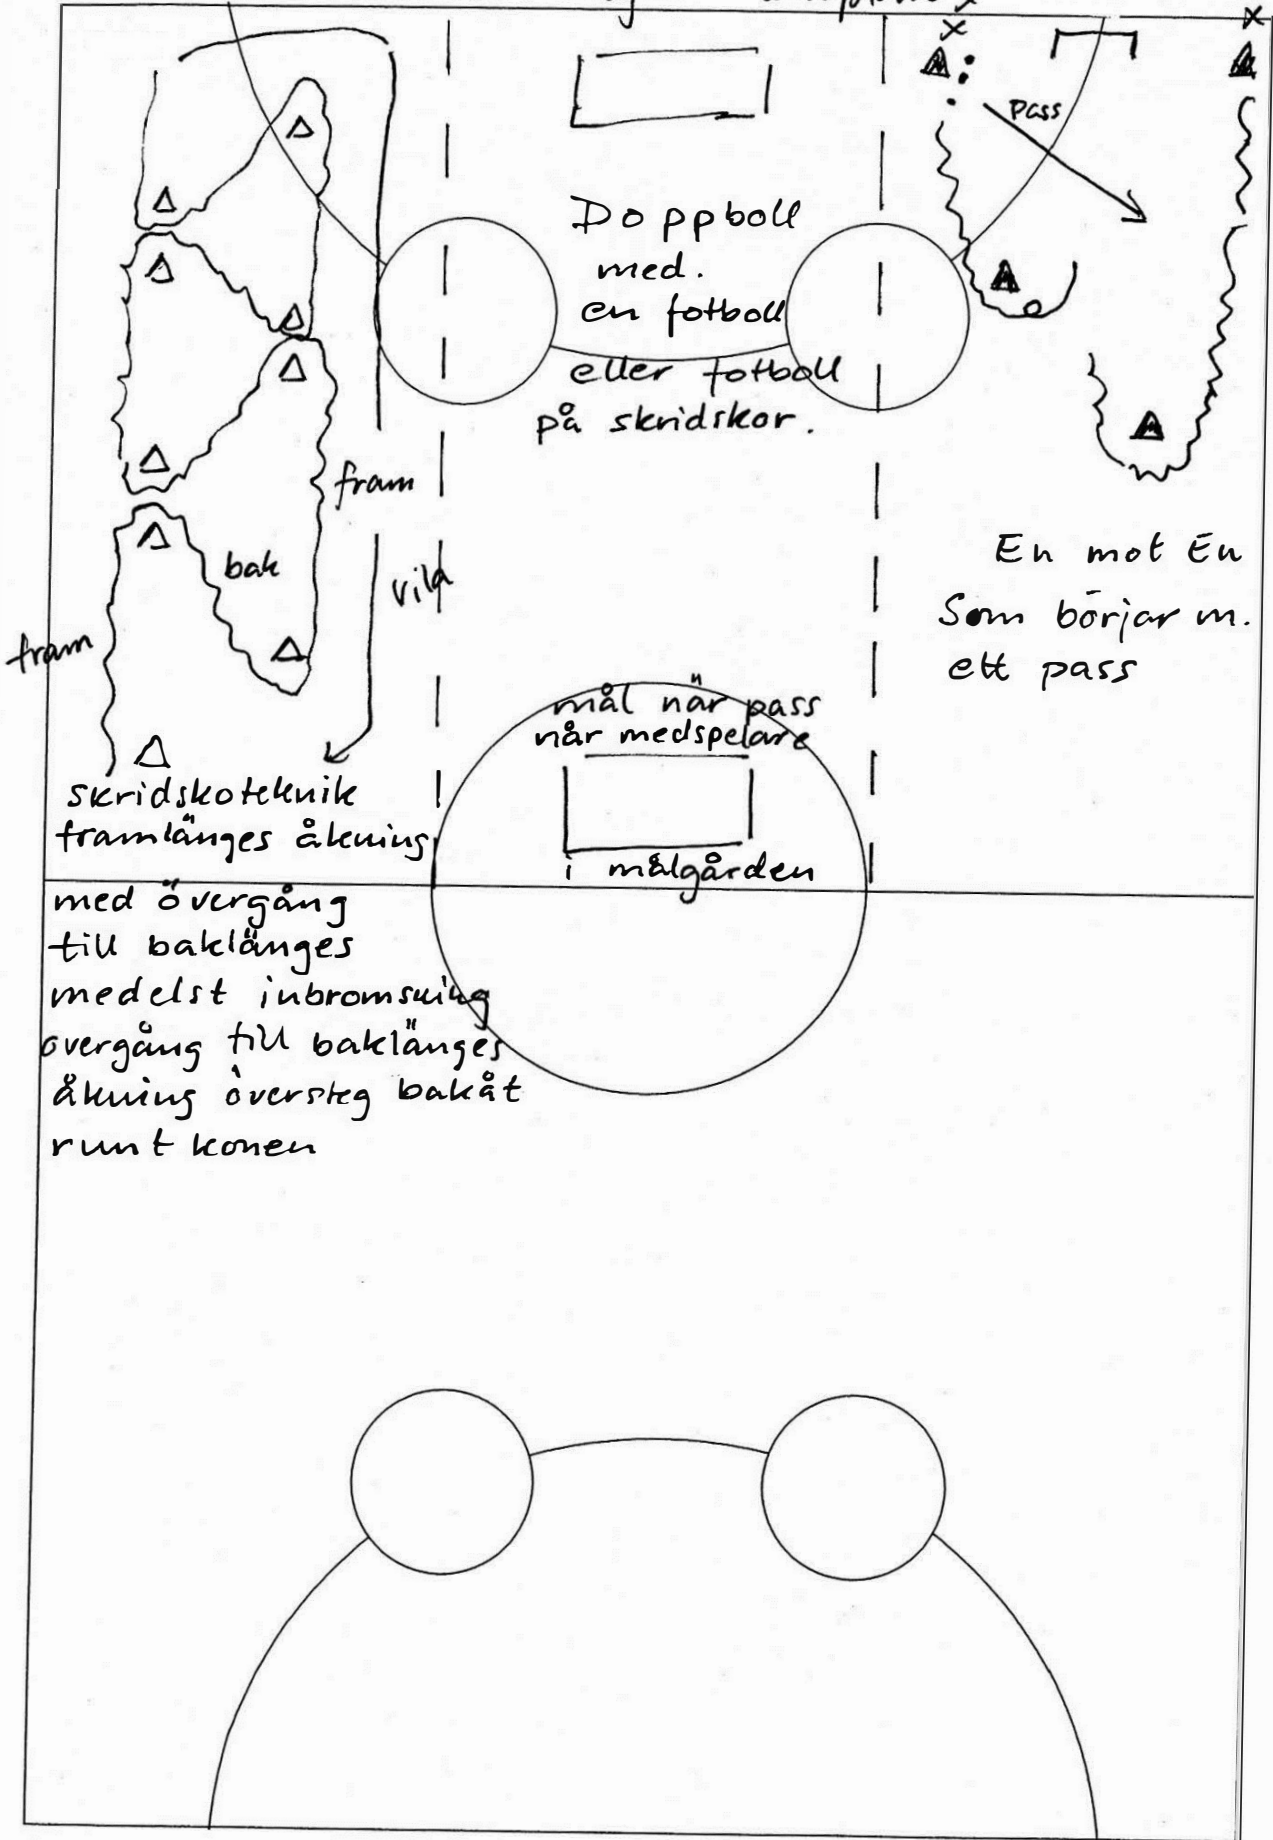 pass
Doppboll
med.
en fotboll
eller fotboll
på skridskor.
fram
bak
vila
fram
En mot En
Som börjar m.
ett pass
mål när pass
når medspelare
i målgården
skridskoteknik
framlänges åkning
med övergång
till baklänges
medelst inbromsning
övergång till baklänges
åkning översteg bakåt
runt konen